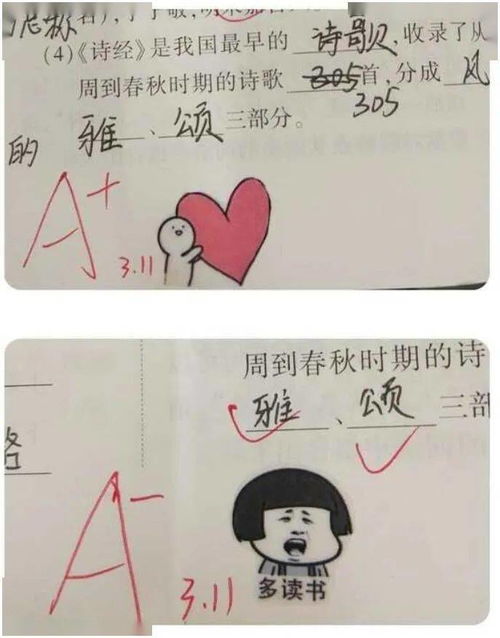 (4)《诗经》是我国最早的 诗歌 , 收录了从
周到春秋时期的诗歌 305 首, 分成 风
305
的 雅 、 颂 三部分。
A+
3.11
周到春秋时期的诗
雅 、 颂 三部
A-
3.11
多读书